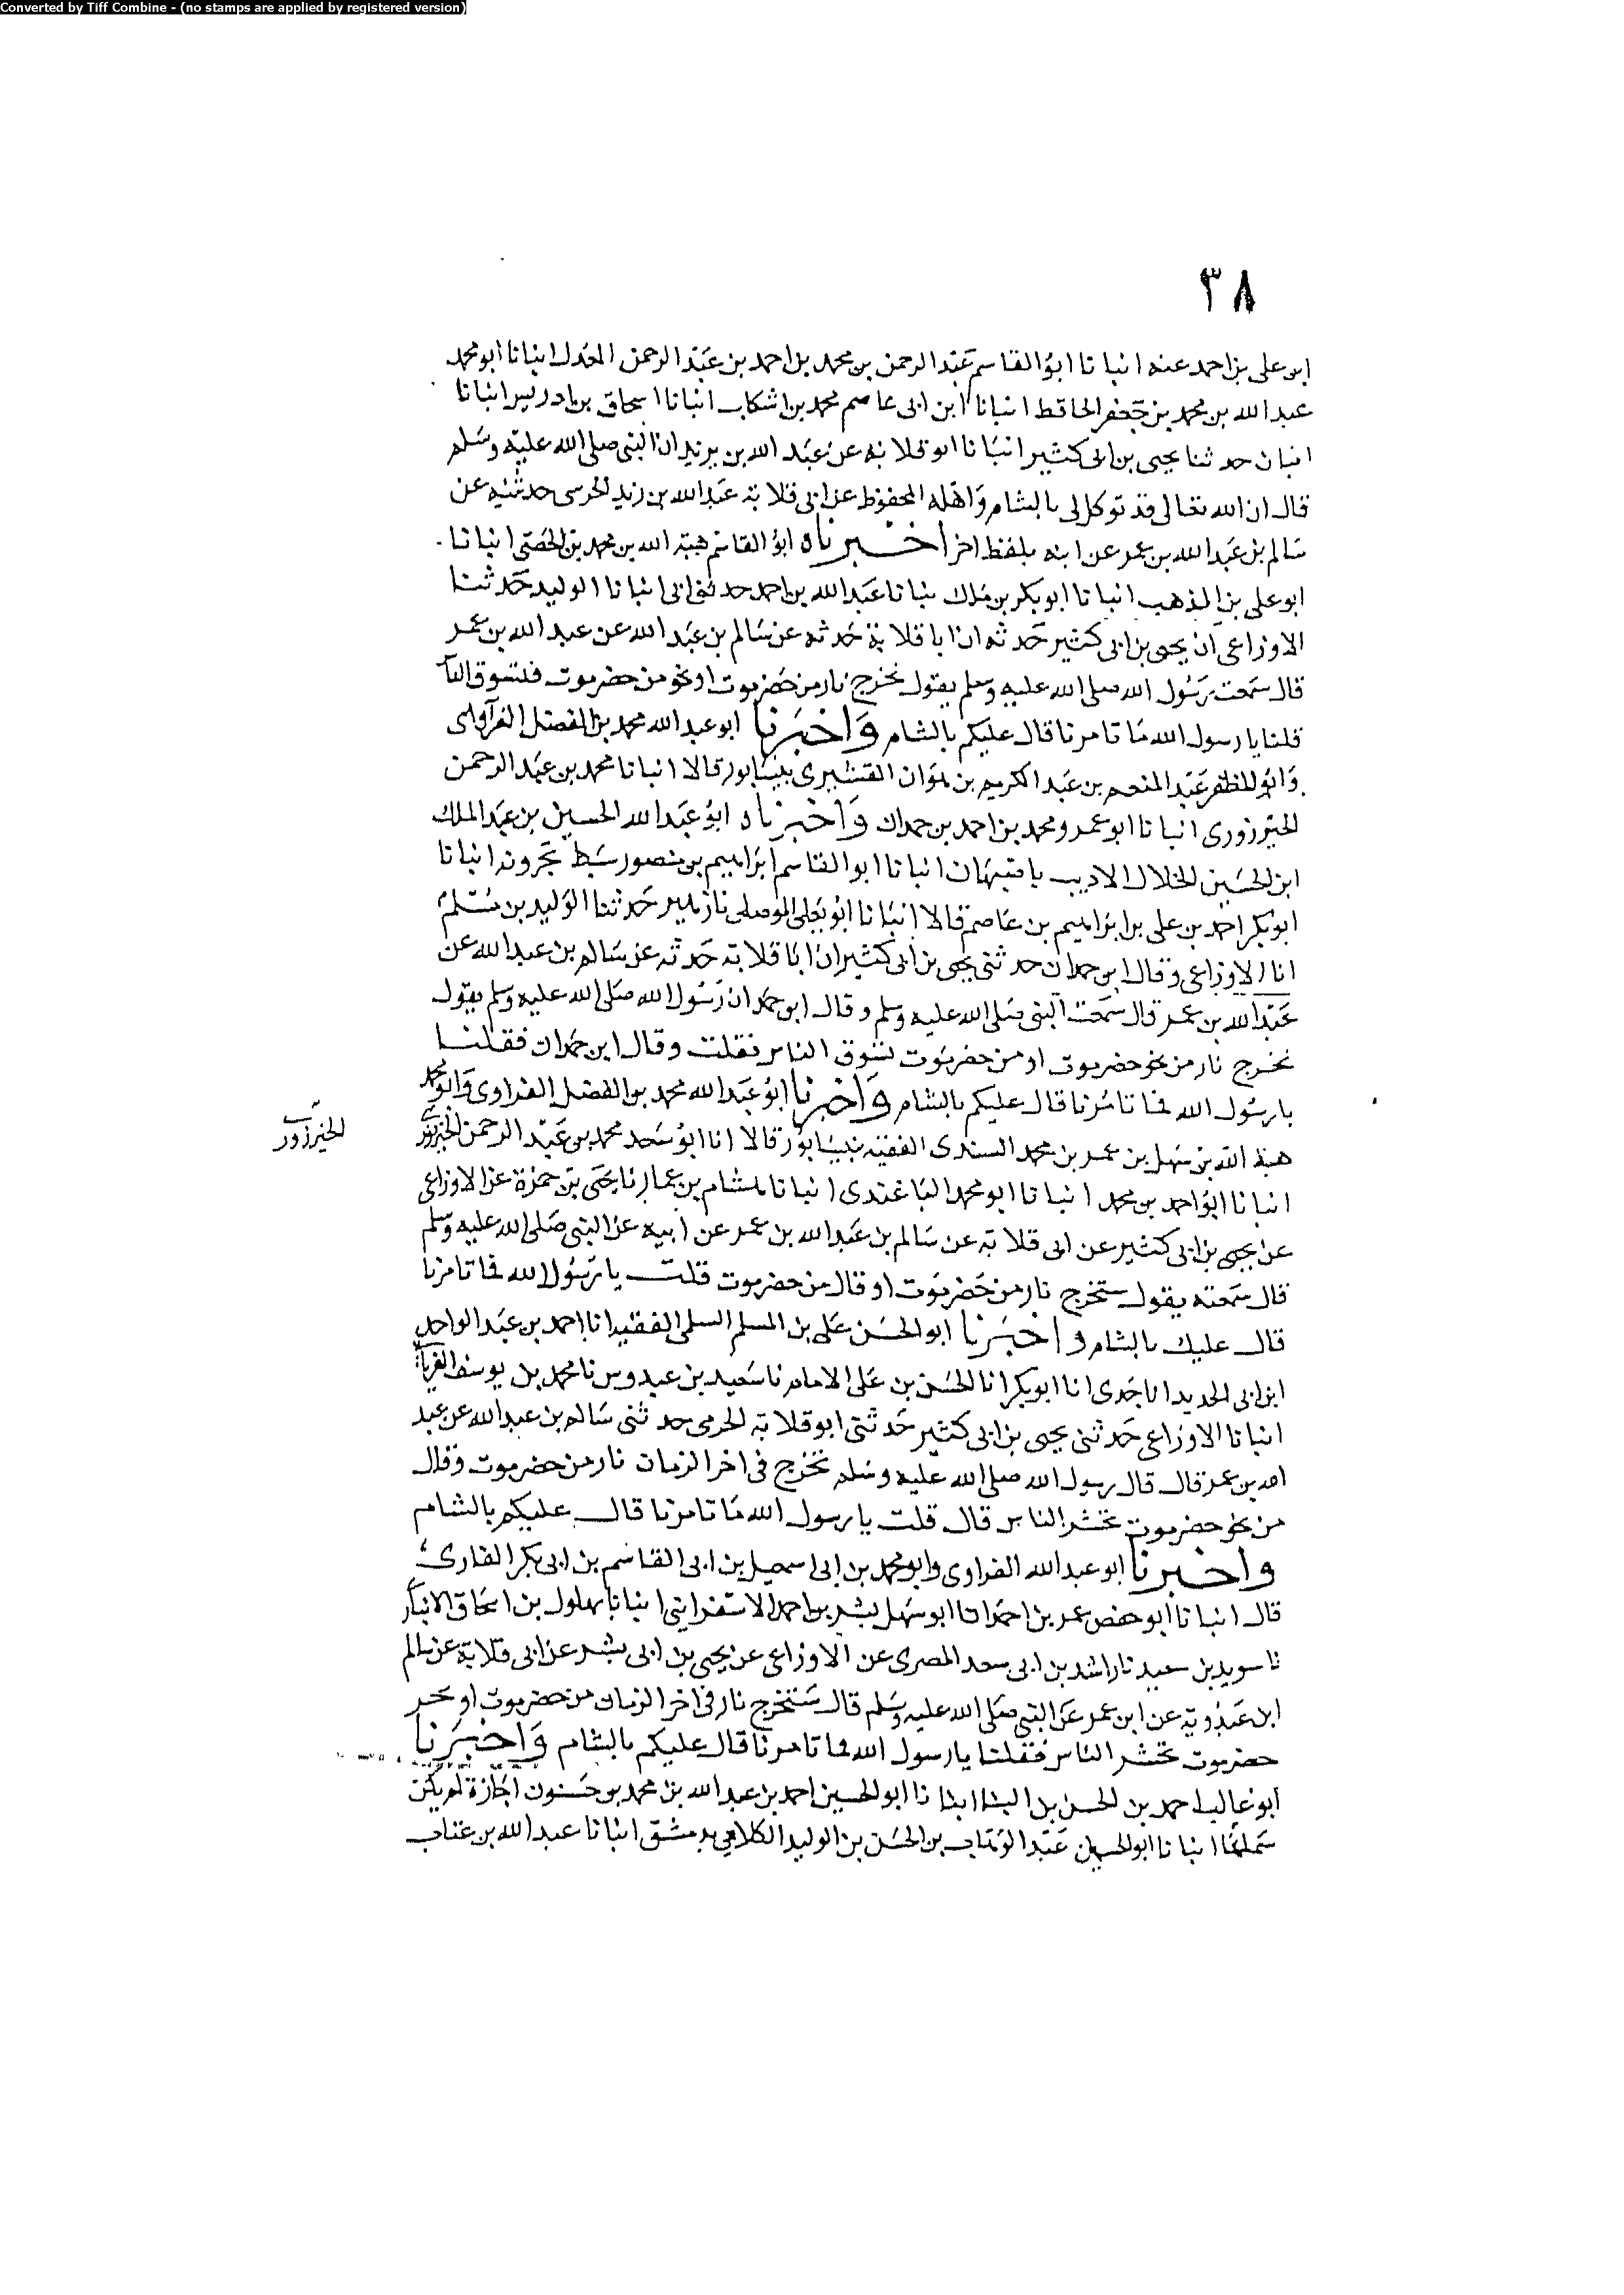 Converted by Tiff Combine - (no stamps are applied by registered version)
٣٨
ابو على بن احمد عنه انبانا ابو القاسم عبد الرحمن بن محمد بن احمد بن عبد الرحمن المعدل انبانا ابو محمد
عبد الله بن محمد بن جعفر الحافظ انبانا ابن ابى عاصم محمد بن اشكاب انبانا اسحاق بن ادريس انبانا
ابان حدثنا يحيى بن ابى كثير انبانا ابو قلابه عن عبد الله بن يزيد ان النبى صلى الله عليه وسلم
قال ان الله تعالى قد توكل لى بالشام واهله المحفوظ عن ابى قلابة عبد الله بن زيد الجرمى حديثه عن
سالم بن عبد الله بن عمر عن ابيه بلفظ اخر اخبرناه ابو القاسم هبة الله بن محمد بن الحصين انبانا
ابو على بن المذهب انبانا ابو بكر بن ملك نبانا عبد الله بن احمد حدثنى ابى انبانا الوليد حدثنا
الاوزاعى ان يحيى بن ابى كثير حدثه ان ابا قلابة حدثه عن سالم بن عبد الله عن عبد الله بن عمر
قال سمعت رسول الله صلى الله عليه وسلم يقول تخرج نار من حضرموت او نحو من حضرموت فتسوق النا
قلنا يا رسول الله ما تامرنا قال عليكم بالشام واخبرنا ابو عبد الله محمد بن الفضل الفراوى
وابو المظفر عبد المنعم بن عبد الكريم بن هوازن القشيرى بنيسابور قالا انبانا محمد بن عبد الرحمن
الجنزرودى انبانا ابو عمرو محمد بن احمد بن حمدان واخبرناه ابو عبد الله الحسين بن عبد الملك
ابن الحسين الخلال الاديب باصبهان انبانا ابو القاسم ابراهيم بن منصور سبط بحرويه انبانا
ابو بكر احمد بن على بن ابراهيم بن عاصم قالا انبانا ابو يعلى الموصلى نا زهير حدثنا الوليد بن مسلم
انا الاوزاعى وقال ابن حمدان حدثنى يحيى بن ابى كثير ان ابا قلابة حدثه عن سالم بن عبد الله عن
عبد الله بن عمر قال سمعت النبى صلى الله عليه وسلم وقال ابن حمدان رسول الله صلى الله عليه وسلم يقول
تخرج نار من نحو حضرموت او من حضرموت تسوق الناس فقلت وقال ابن حمدان فقلنا
يا رسول الله فما تامرنا قال عليكم بالشام واخبرنا ابو عبد الله محمد بن الفضل الفراوى وابو محمد
هبة الله بن سهل بن عمر بن محمد السندى الفقيه بنيسابور قالا انا ابو سعد محمد بن عبد الرحمن
انبانا ابو احمد بن محمد انبانا ابو محمد الباغندى انبانا هشام بن عمار نا يحيى بن حمزة عن الاوزاعى
عن يحيى بن ابى كثير عن ابى قلابة عن سالم بن عبد الله بن عمر عن ابيه عن النبى صلى الله عليه وسلم
قال سمعته يقول ستخرج نار من حضرموت او قال من حضرموت قلت يا رسول الله فما تامرنا
قال عليك بالشام واخبرنا ابو الحسن على بن المسلم السلمى الفقيه انا احمد بن عبد الواحد
ابن ابى الحديد انا جدى انا ابو بكر انا الحسن بن على الامام نا سعيد بن عبدوس نا محمد بن يوسف الفريابى
انبانا الاوزاعى حدثنى يحيى بن ابى كثير حدثنى ابو قلابة الجرمى حدثنى سالم بن عبد الله عن عبد
الله بن عمر قال قال رسول الله صلى الله عليه وسلم تخرج فى اخر الزمان نار من حضرموت وقال
من نحو حضرموت تحشر الناس قال قلت يا رسول الله ما تامرنا قال عليكم بالشام
واخبرنا ابو عبد الله الفراوى وابو محمد بن ابى اسمعيل بن ابى القاسم بن ابى بكر القارى
قال انبانا ابو حفص عمر بن احمد انا ابو سهل بشر بن احمد الاسفراينى انبانا بهلول بن اسحاق الانبار
نا سويد بن سعيد نا راشد بن ابى سعد المصرى عن الاوزاعى عن يحيى بن ابى بشر عن ابى قلابة عن سالم
ابن عبدويه عن ابن عمر عن النبى صلى الله عليه وسلم قال ستخرج نار فى اخر الزمان من حضرموت او بحر
حضرموت تحشر الناس فقلنا يا رسول الله فما تامرنا قال عليكم بالشام واخبرنا
ابو غالب احمد بن الحسن بن البنا انبانا ابو الحسين احمد بن عبد الله بن محمد بن حسنون اجازة لم يكن
سماعا انبانا ابو الحسين عبد الوهاب بن الحسن بن الوليد الكلابى بدمشق انبانا عبد الله بن عتاب